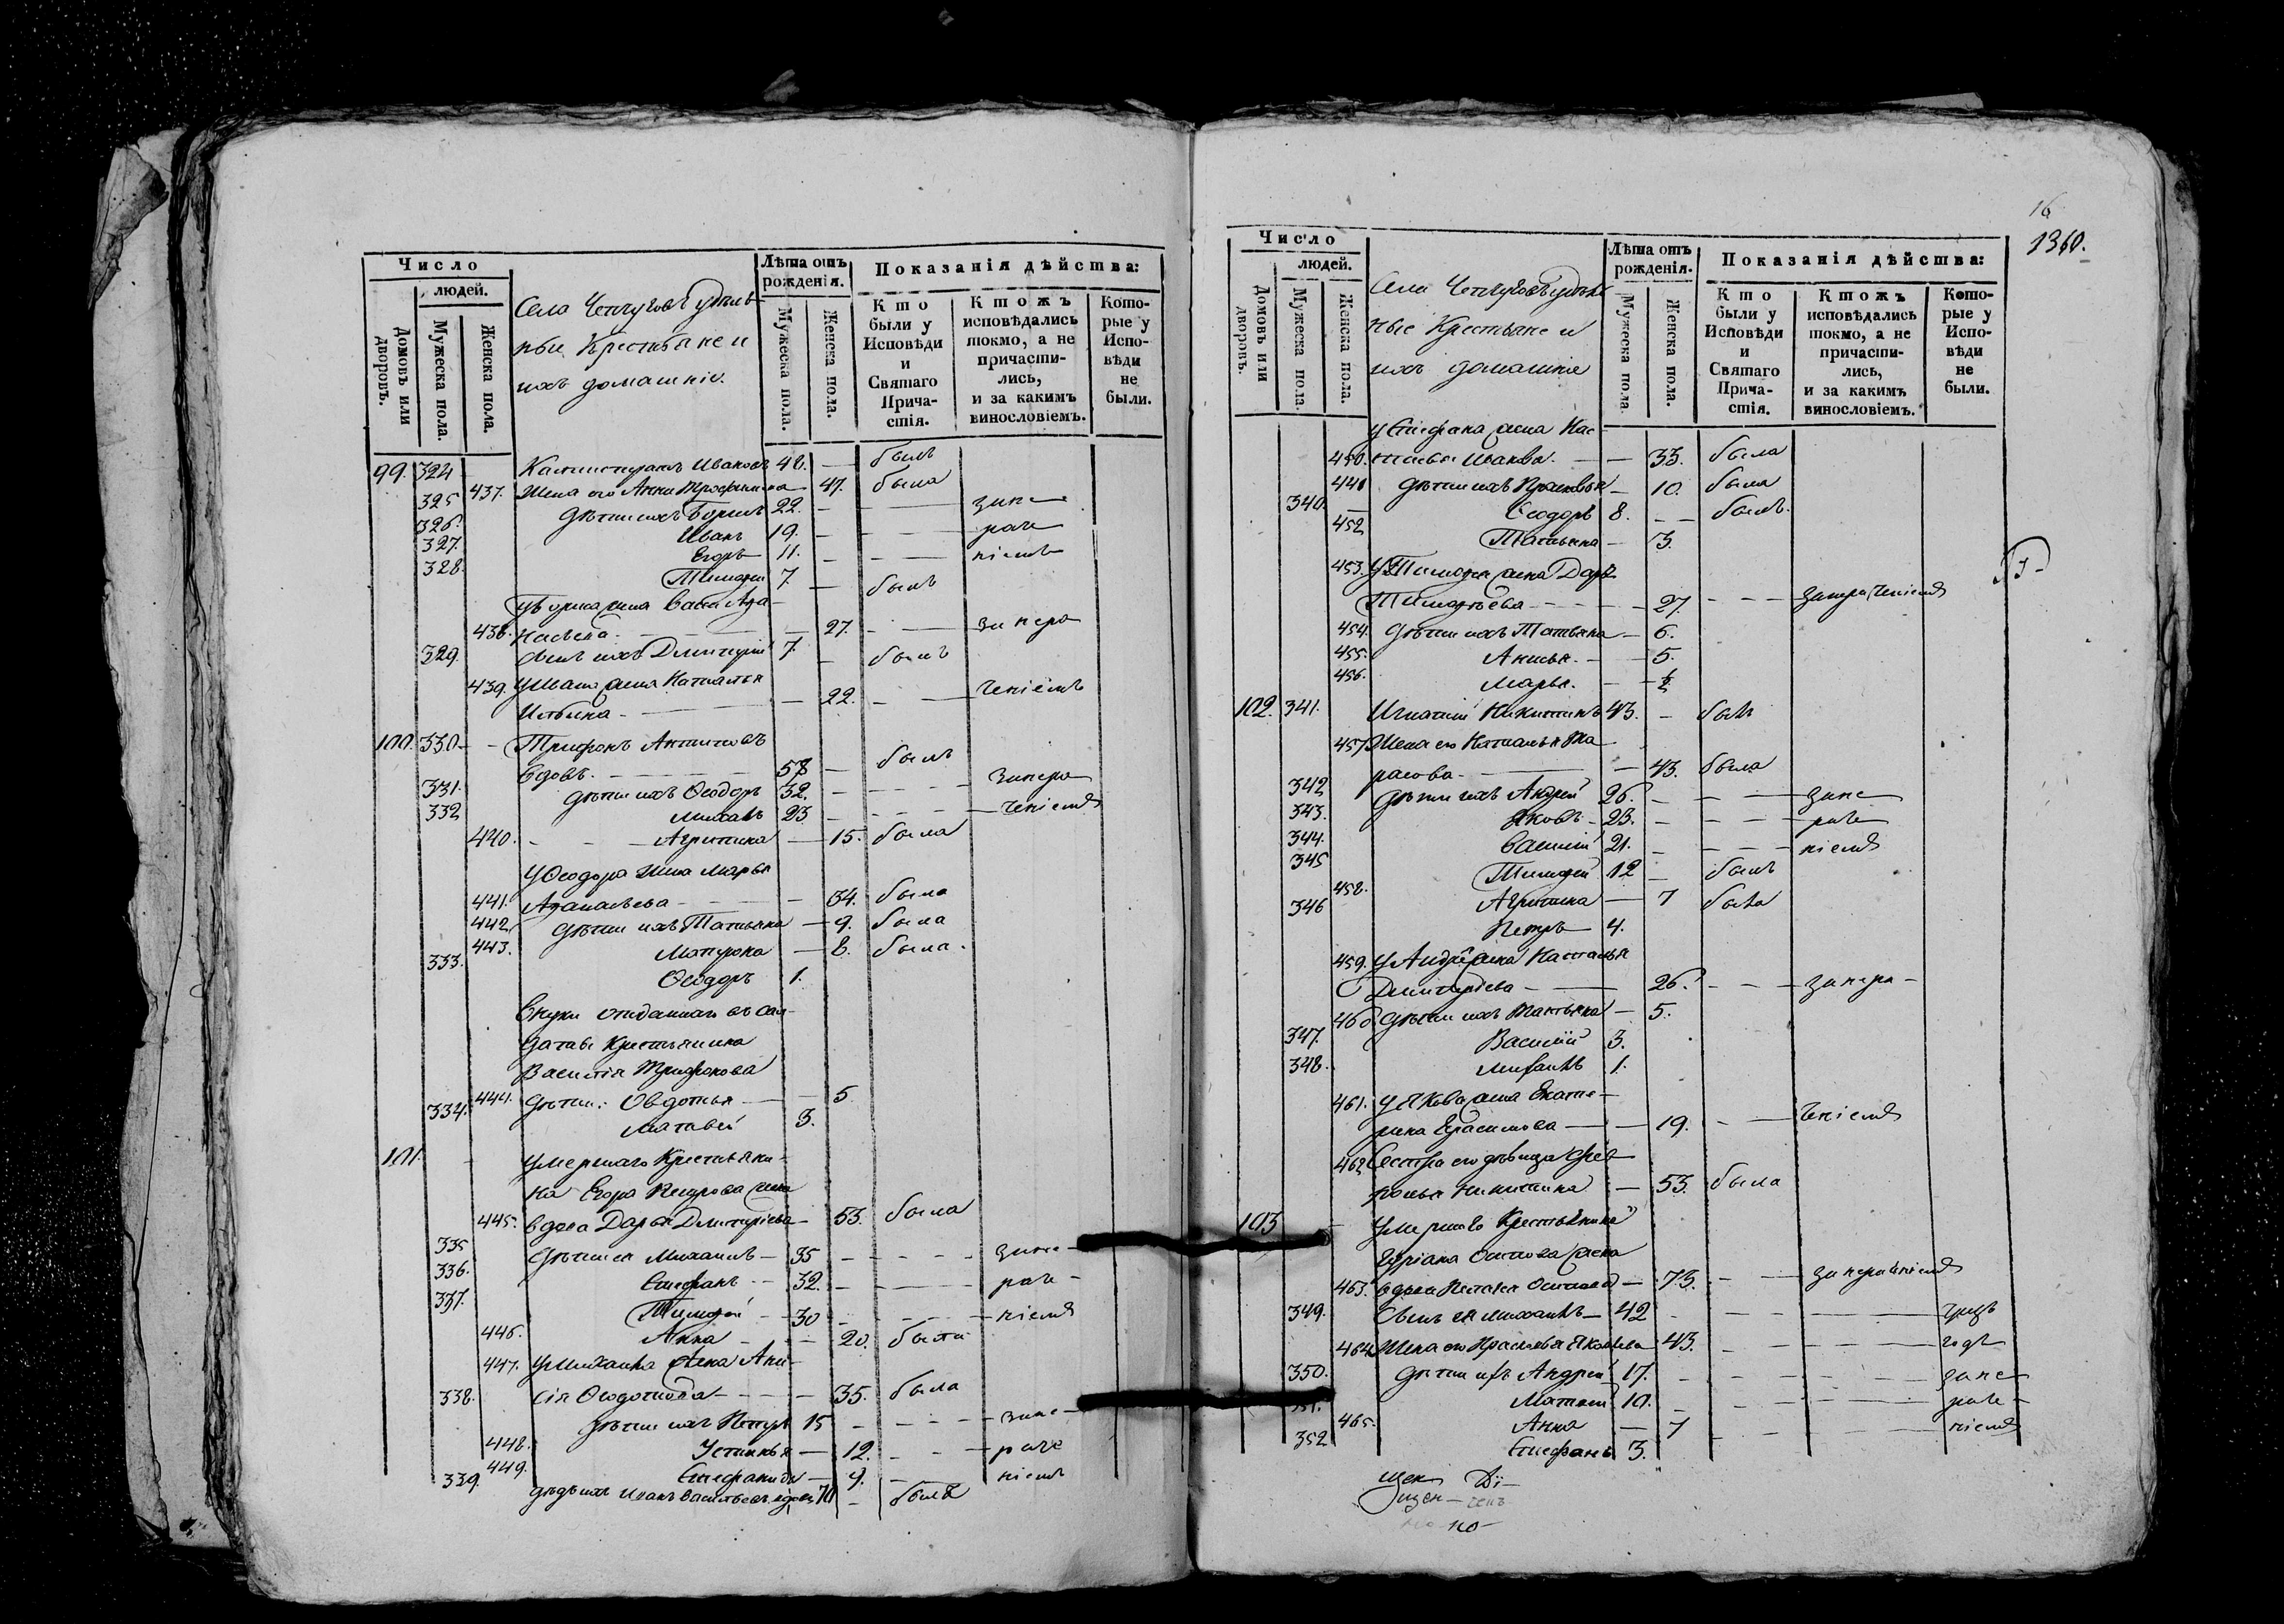 Число
людей.
Домовъ или дворовъ.
Мужеска пола.
Женска пола.
Села Чепчуговъ удѣль-
ные Крестьяне и
ихъ домашніе.
Лѣта отъ рожденія.
Мужеска пола.
Женска пола.
Показанія дѣйства:
Кто были у Исповѣди и Святаго Причастія.
Ктожъ исповѣдались токмо, а не причастились, и за какимъ винословіемъ.
Которые у Исповѣди не были.
99. 324 Ивановъ 48. — былъ
437. Жена его Анна — 47. была
325 дѣти ихъ 22. — — за не-
326. Иванъ 19. — — раче-
327. Егоръ 11. — — ніемъ
328. Тимофей 7. — былъ
жена
438. — 27. — за нера-
329. сынъ ихъ Дмитрій 7. — былъ
439. У Ивана жена Наталья
Ильина — 22. — ченіемъ
100. 330 — Трифонъ Антиповъ
вдовъ. 58 — былъ
331. дѣти ихъ Ѳеодоръ 32. — — за нера-
332 23 — — ченіемъ
440. — Агрипина — 15. была
У Ѳеодора жена Марья
441. Аѳанасьева — 34. была
442. дѣти ихъ Татьяна — 9. была
443. Матрона — 8. была.
333. Ѳеодоръ 1.
Внуки отданнаго въ сол-
даты Крестьянина
Василія Трифонова
444. дѣти: Овдотья — 5
334. Матвей 3.
101. — умершаго Крестьяни-
на Егора Петрова жена
445. вдова Дарья Дмитріева — 53. была
335 дѣти ея Михаилъ — 35 — — за не-
336. Стефанъ — 32. — — раче-
337. Тимофей — 30 — — ніемъ
446. Анна — 20. была
447. У Михаила жена Ани-
сія Ѳедотова — 35. была
338. дѣти ихъ Петръ 15 — — за не-
448. Устинья — 12. — — раче
449. Стефанида — 9. — ніемъ
339. дѣдъ ихъ Иванъ Васильевъ вдовъ 70 — былъ
16
1360.
Число
людей.
Домовъ или дворовъ.
Мужеска пола.
Женска пола.
Села Чепчуговъ удѣль
ные Крестьяне и
ихъ домашніе
Лѣта отъ рожденія.
Мужеска пола.
Женска пола.
Показанія дѣйства:
Кто были у Исповѣди и Святаго Причастія.
Ктожъ исповѣдались токмо, а не причастились, и за какимъ винословіемъ.
Которые у Исповѣди не были.
У Стефана жена Нас-
450. тасья Иванова. — — 33. была
441 дѣти ихъ Прасковья — 10. была
340. Ѳеодоръ 8. — — былъ.
452 Татьяна — 3.
453. У Тимофея жена Дарья
Тимофѣева — — 27. — — за нераченіемъ
454. дѣти ихъ Татьяна — 6.
455. Анисья. — — 5.
456. Марья. — — ½
102. 341. Игнатій Никитинъ 43. — былъ
457. Жена его Наталья Та-
расова — — 43. была
342 дѣти ихъ Андрей 26. — — за не
343. Яковъ — 23. — — раче
344. Василій 21. — — ніемъ
345 Тимофей 12 — былъ
458. Агрипина — 7 была
346 Петръ 4.
459. У Андрея жена Наталья
Дмитріева — 26. — — за нера-
460. дѣти ихъ Татьяна — 5.
347. Василій 3.
348. Михаилъ 1.
461. У Якова жена Екате-
рина Герасимова — — 19. — — ченіемъ
462. Сестра его дѣвица Фев-
ронья Никитина — 53. была
103 — умершаго Крестьянина
Осипова жена
463. вдова Пелагея Осипова — 73. — — за нераченіемъ
349. Сынъ ея Михаилъ — 42 — —
464. Жена его Прасковья Яковлева — 43. — —
350. дѣти ихъ Андрей 17. — — за не-
351. Матвей 10. — — раче-
465. Анна — 7 — — ніемъ
352 Стефанъ 3. —
но